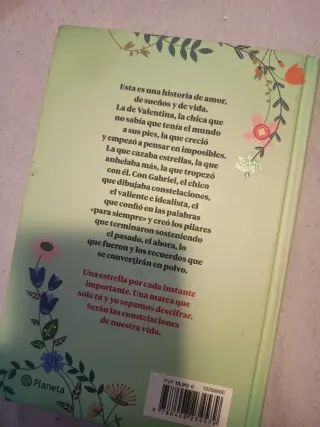 Esta es una historia de amor,
de sueños y de vida.
La de Valentina, la chica que
no sabía que tenía el mundo
a sus pies, la que creció
y empezó a pensar en imposibles.
La que cazaba estrellas, la que
anhelaba más, la que tropezó
con él. Con Gabriel, el chico
que dibujaba constelaciones,
el valiente e idealista, el
que confió en las palabras
«para siempre» y creó los pilares
que terminaron sosteniendo
el pasado, el ahora, lo
que fueron y los recuerdos que
se convertirán en polvo.
Una estrella por cada instante
importante. Una marca que
solo tú y yo sepamos descifrar.
Serán las constelaciones
de nuestra vida.
Planeta
PVP 18,90 €